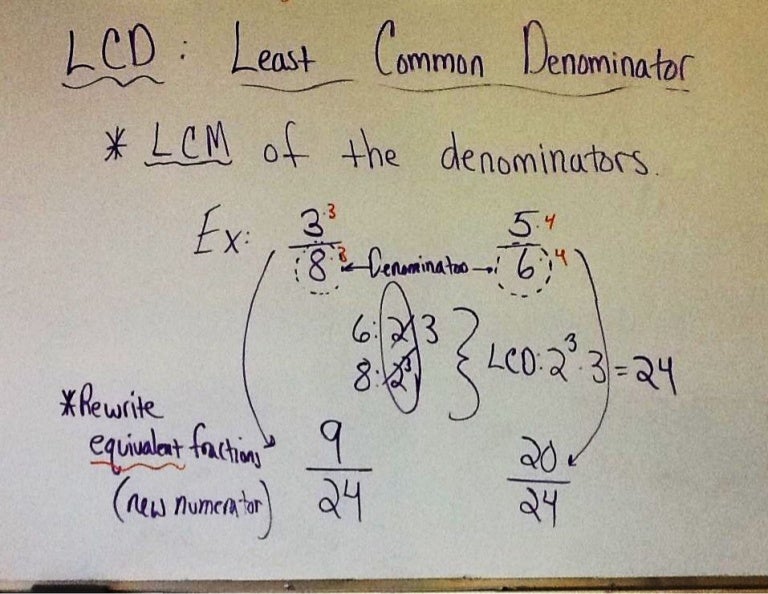 LCD: Least Common Denominator
* LCM of the denominators.
Ex: 3·3/8·3 ←Denominators→ 5·4/6·4
6: 2 3
8: 2³ } LCD: 2³·3 = 24
*Rewrite
equivalent fractions 9/24 20/24
(new numerator)